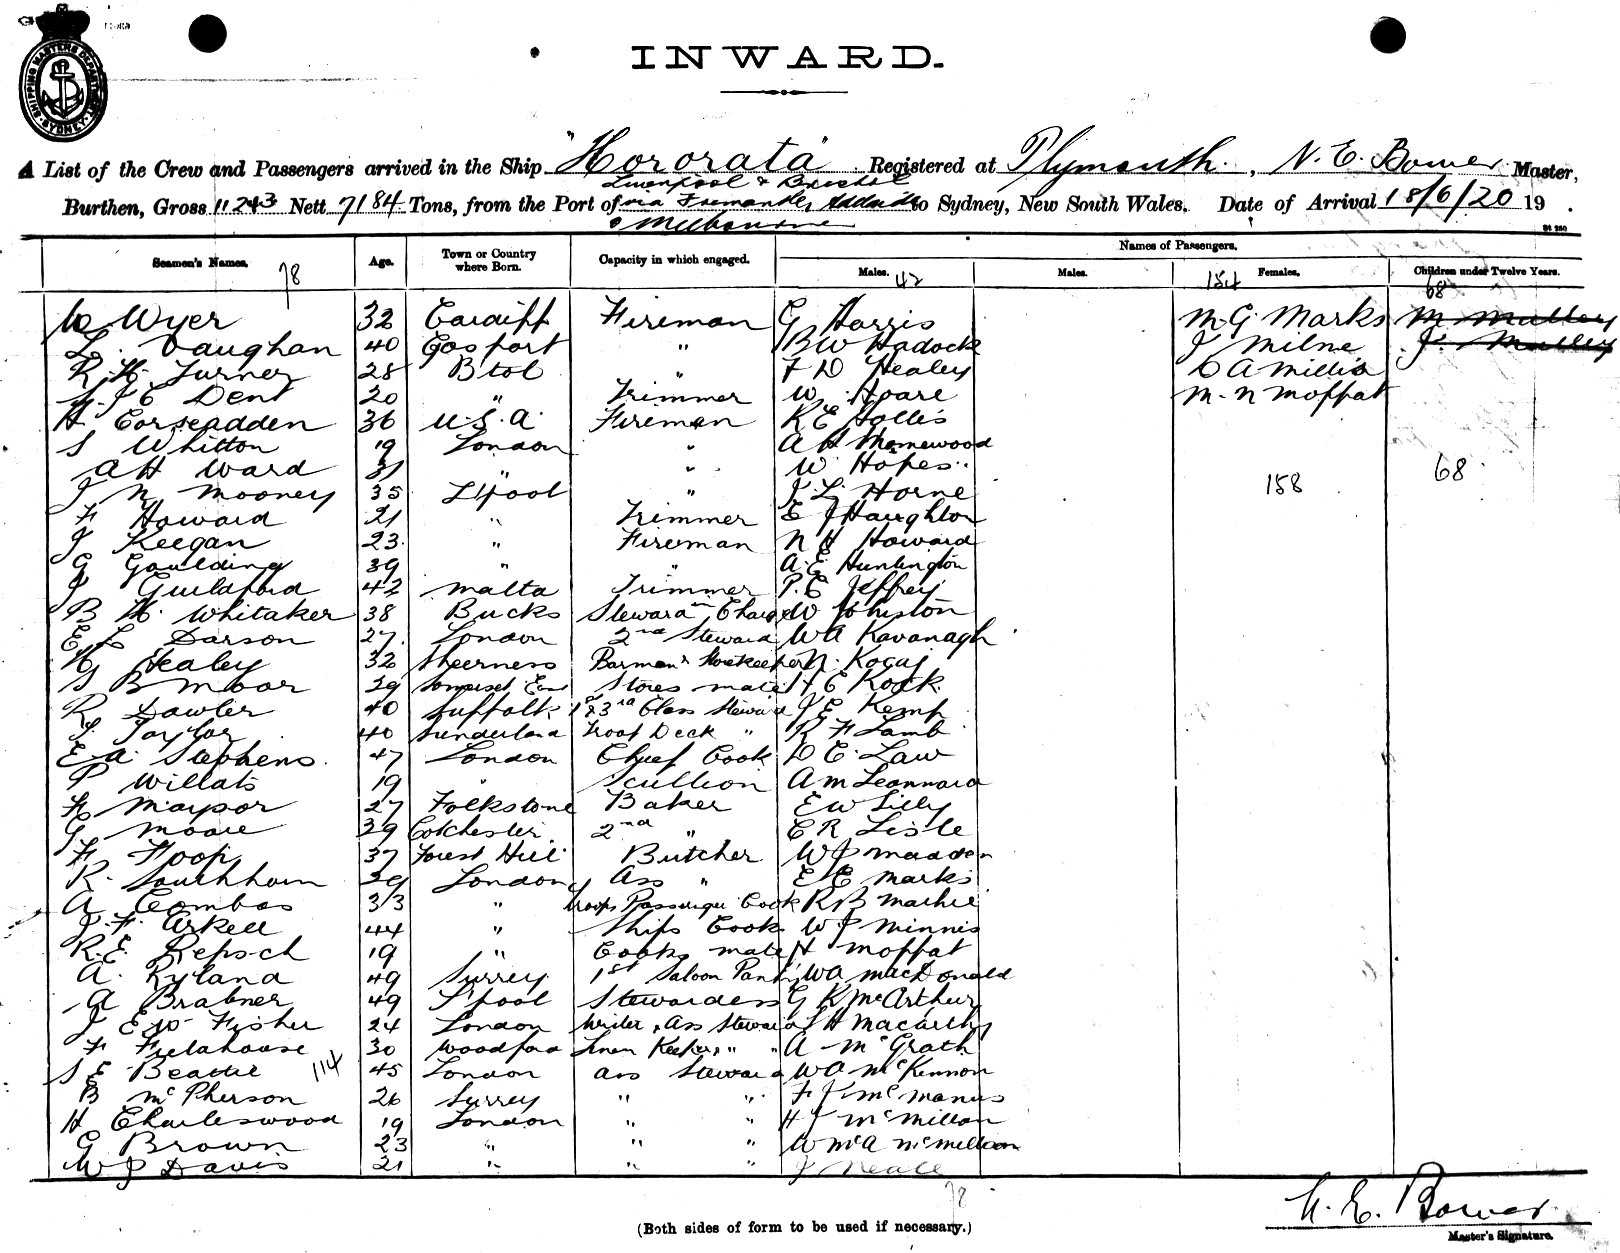 SHIPPING MASTERS DEPARTMENT SYDNEY
INWARD.
A List of the Crew and Passengers arrived in the Ship "Hororata" Registered at Plymouth, N. E. Bower Master,
Liverpool & Bristol
Burthen, Gross 11243 Nett 7184 Tons, from the Port of via Fremantle, Adelaide to Sydney, New South Wales. Date of Arrival 18/6/20 19 .
& Melbourne
Names of Passengers.
Seamen's Names. Age. Town or Country where Born. Capacity in which engaged. Males. Males. Females. Children under Twelve Years.
78 42 154 68
W Wyer 32 Cardiff Fireman G Harris M. G. Marks M Malley
L. Vaughan 40 Gosport " B W Hadock J Milne J. Malley
R. H. Turner 28 Btol " F D Healey C A Millis
J C Dent 20 " Trimmer W. Hoare M. N Moffat
H. Corscadden 36 U.S.A. Fireman K E Hollis
S Whitton 19 London " A H Homewood
A H Ward 31 " " W. Hopes
J N Mooney 35 L'pool " J. L. Horne 158 68
F Howard 21 " Trimmer E J Haughton
J Keegan 23 " Fireman N H Howard
G Goulding 39 " " A. E. Huntington
J Guildford 42 Malta Trimmer P. E Jeffrey
B H. Whitaker 38 Bucks Steward in Charge W Johnston
E L Darson 27 London 2nd Steward W A Kavanagh
H Healey 32 Sheerness Barman & Storekeeper N. Kogaj
S B Moor 29 Somerset East Stores mate H E Kock
R Dowler 40 Suffolk 1st & 3rd Class Steward J E Kemp
J. Taylor 40 Sunderland Troop Deck " R F Lamb
E A Stephens 47 London Chief Cook D E Law
P Willats 19 " Scullion A M Leannard
H Maypor 27 Folkstone Baker E W Lilly
G Moore 29 Colchester 2nd " C R Lisle
F Hoop 37 Forest Hill Butcher W J Madden
R. Southham 29 London Ass " E E Marks
A Combas 33 " Troops Passenger Cook R B Mackie
J. F. Arkell 44 " Ships Cook W J Minnis
R. E. Repsch 19 " Cooks mate H Moffat
A. Ryland 49 Surrey 1st Saloon Pantry W A MacDonald
A Brabner 49 L'pool Stewardess G K McArthur
J E W Fisher 24 London Writer & Ass Steward L H Macarthy
F Fieldhouse 30 Woodford Linen Keeper & " " A McGrath
S E Beadle 114 45 London Ass Steward W A McKennon
B McPherson 26 Surrey " " F J McManus
H Charleswood 19 London " " H J McMillan
G Brown 23 " " " W McA McMillian
W J Davis 21 " " " J Neale
78
N. E. Bower.
(Both sides of form to be used if necessary.)
Master's Signature.